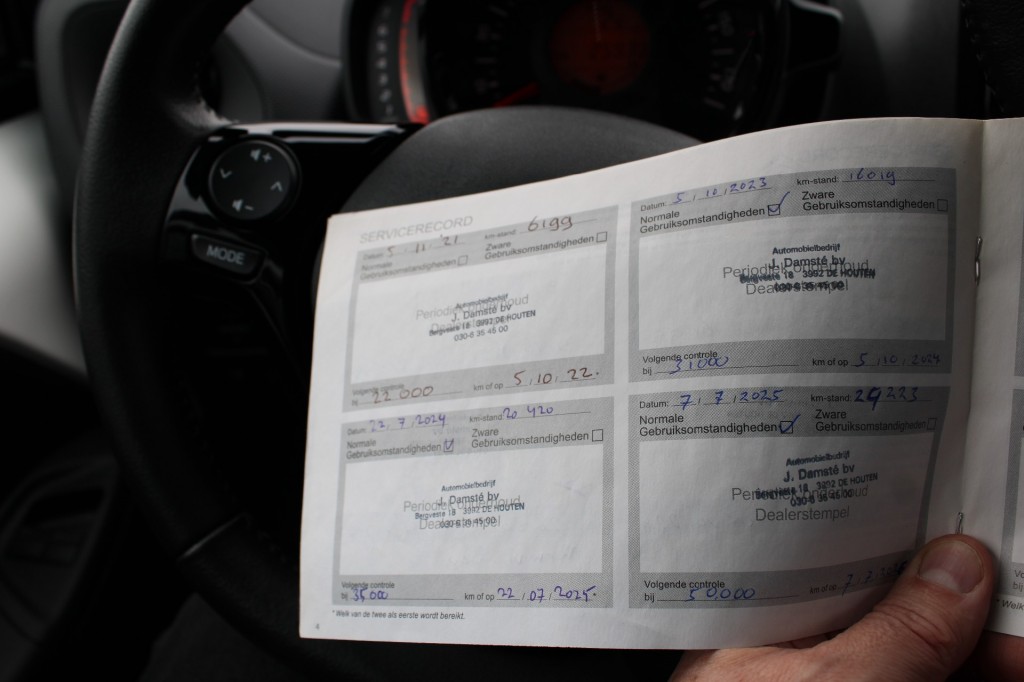 MODE
SERVICERECORD
Datum: 5 . 11 . '21 km-stand: 6199
Normale Gebruiksomstandigheden
Zware Gebruiksomstandigheden
Periodiek onderhoud
Dealerstempel
Automobielbedrijf
J. Damsté bv
Bergveste 18 3992 DE HOUTEN
030-6 35 45 00
Volgende controle
bij 22 000 km of op 5 . 10 . 22.
Datum: 5 . 10 . 2023 km-stand:
Normale Gebruiksomstandigheden
Zware Gebruiksomstandigheden
Periodiek onderhoud
Dealerstempel
Automobielbedrijf
J. Damsté bv
Bergveste 18 3992 DE HOUTEN
030-6 35 45 00
Volgende controle
bij 31000 km of op 5 . 10 . 2024
Datum: 22 . 7 . 2024 km-stand: 20 420
Normale Gebruiksomstandigheden
Zware Gebruiksomstandigheden
Periodiek onderhoud
Dealerstempel
Automobielbedrijf
J. Damsté bv
Bergveste 18 3992 DE HOUTEN
030-6 35 45 00
Volgende controle
bij 35000 km of op 22 . 07 . 2025.
Datum: 7 . 7 . 2025 km-stand: 29 223
Normale Gebruiksomstandigheden
Zware Gebruiksomstandigheden
Periodiek onderhoud
Dealerstempel
Automobielbedrijf
J. Damsté bv
Bergveste 18 3992 DE HOUTEN
030-6 35 45 00
Volgende controle
bij 50.000 km of op 7 . 7
* Welk van de twee als eerste wordt bereikt.
* Welk